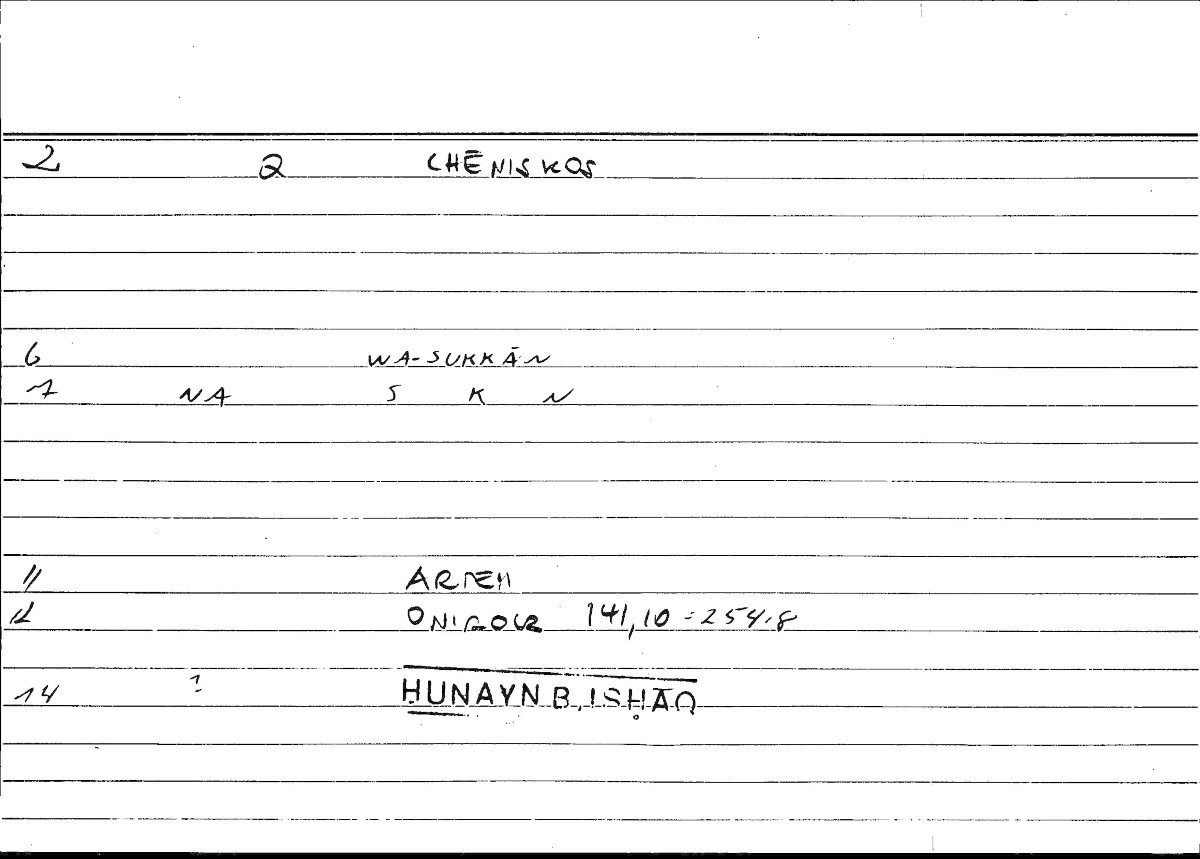 2 2 CHĒNISKOS
6 WA-SUKKĀN
7 NA S K N
11 ARTEM
12 ONIROCR 141,10 = 254.8
14 ? ḤUNAYN B. ISḤĀQ